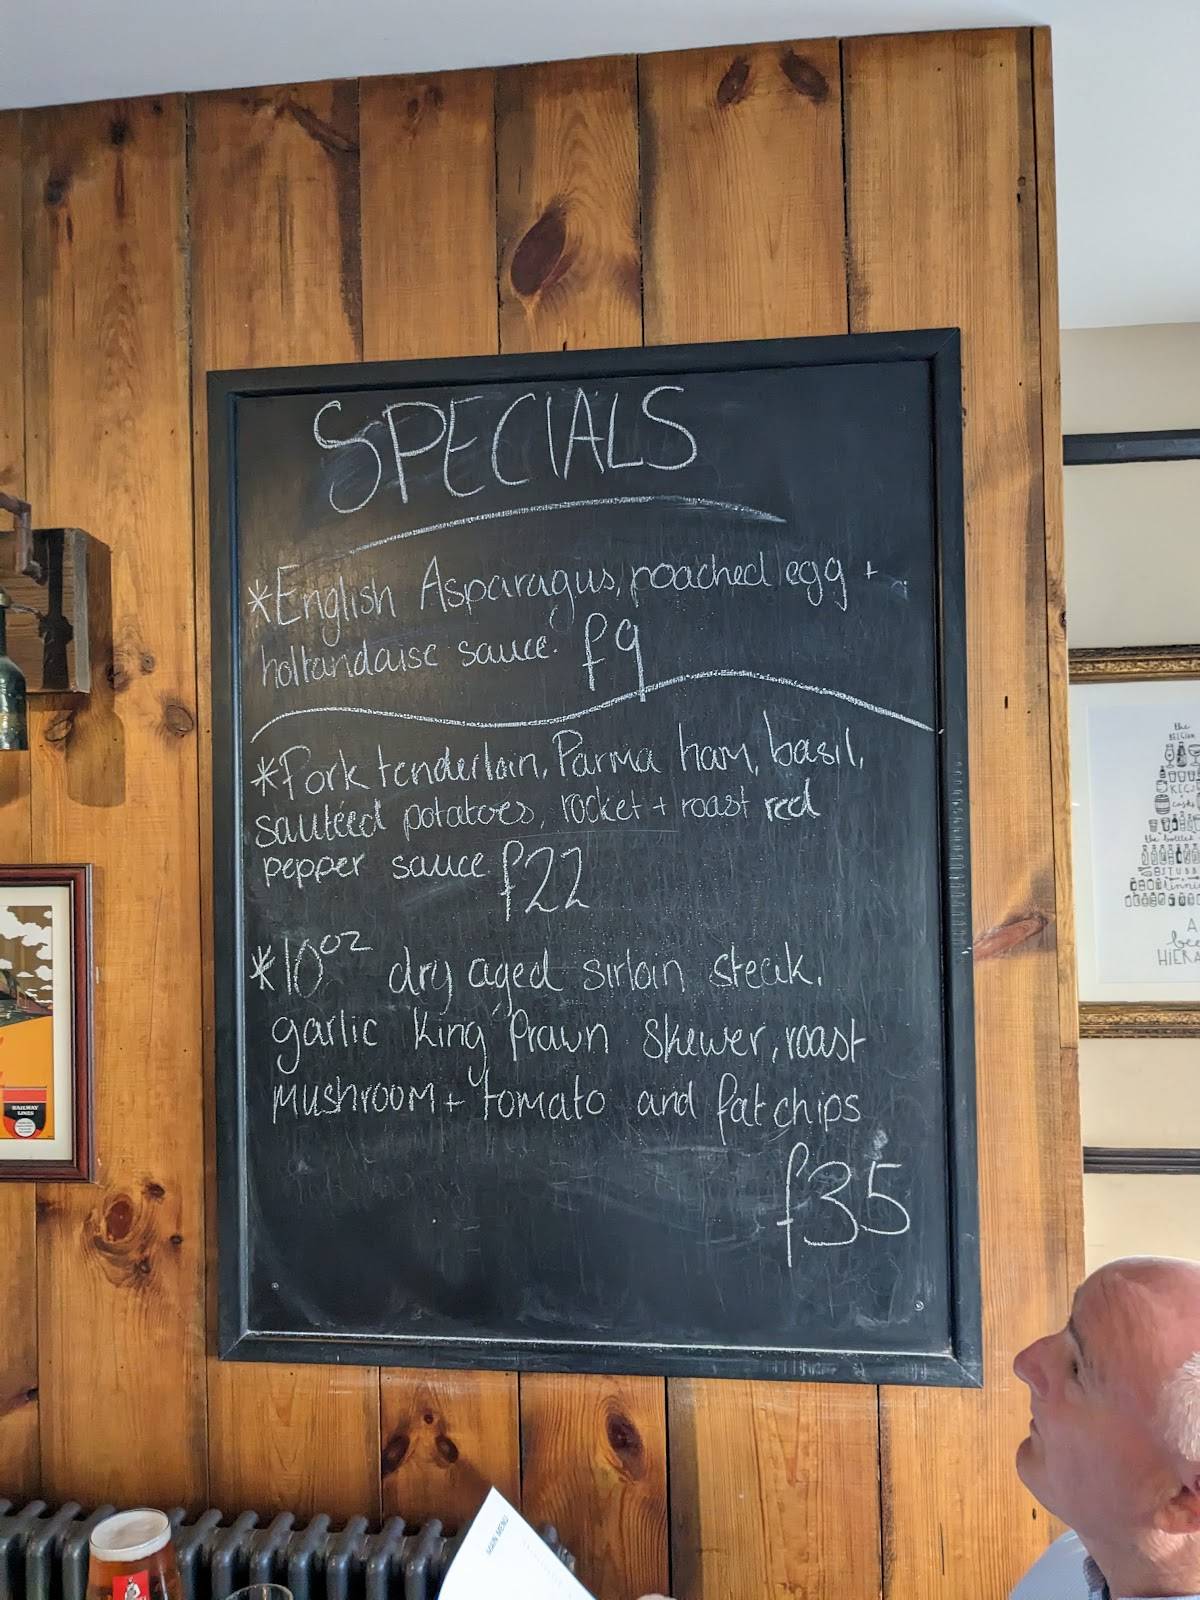 SPECIALS
*English Asparagus, poached egg +
hollandaise sauce. £9
*Pork tenderloin, Parma ham, basil,
sautéed potatoes, rocket + roast red
pepper sauce £22
*10oz dry aged sirloin steak,
garlic King Prawn Skewer, roast
mushroom + tomato and fat chips
£35
the
BELGIAN
KEGS
casks
the bottles
A
HIERA
RAILWAY
LINES
MAIN MENU